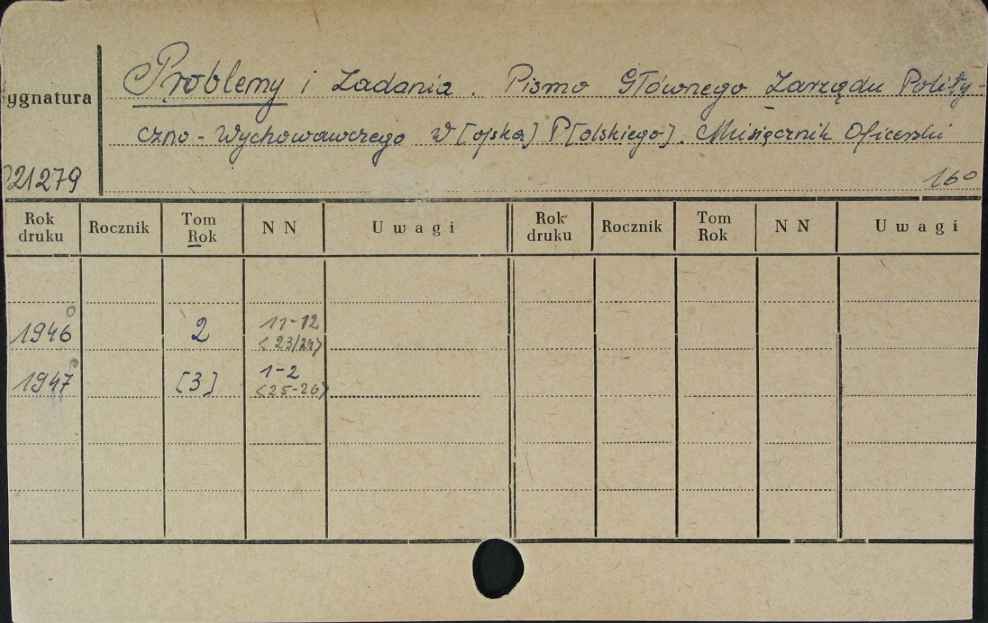 Problemy i Zadania. Pismo Głównego Zarządu Polity-
ygnatura
czno-Wychowawczego W[ojska] P[olskiego]. Miesięcznik Oficerski
21279
16°
Rok druku Rocznik Tom Rok N N Uwagi Rok druku Rocznik Tom Rok N N Uwagi
1946° 2 11-12
<23/24>
1947° [3] 1-2
<25-26>